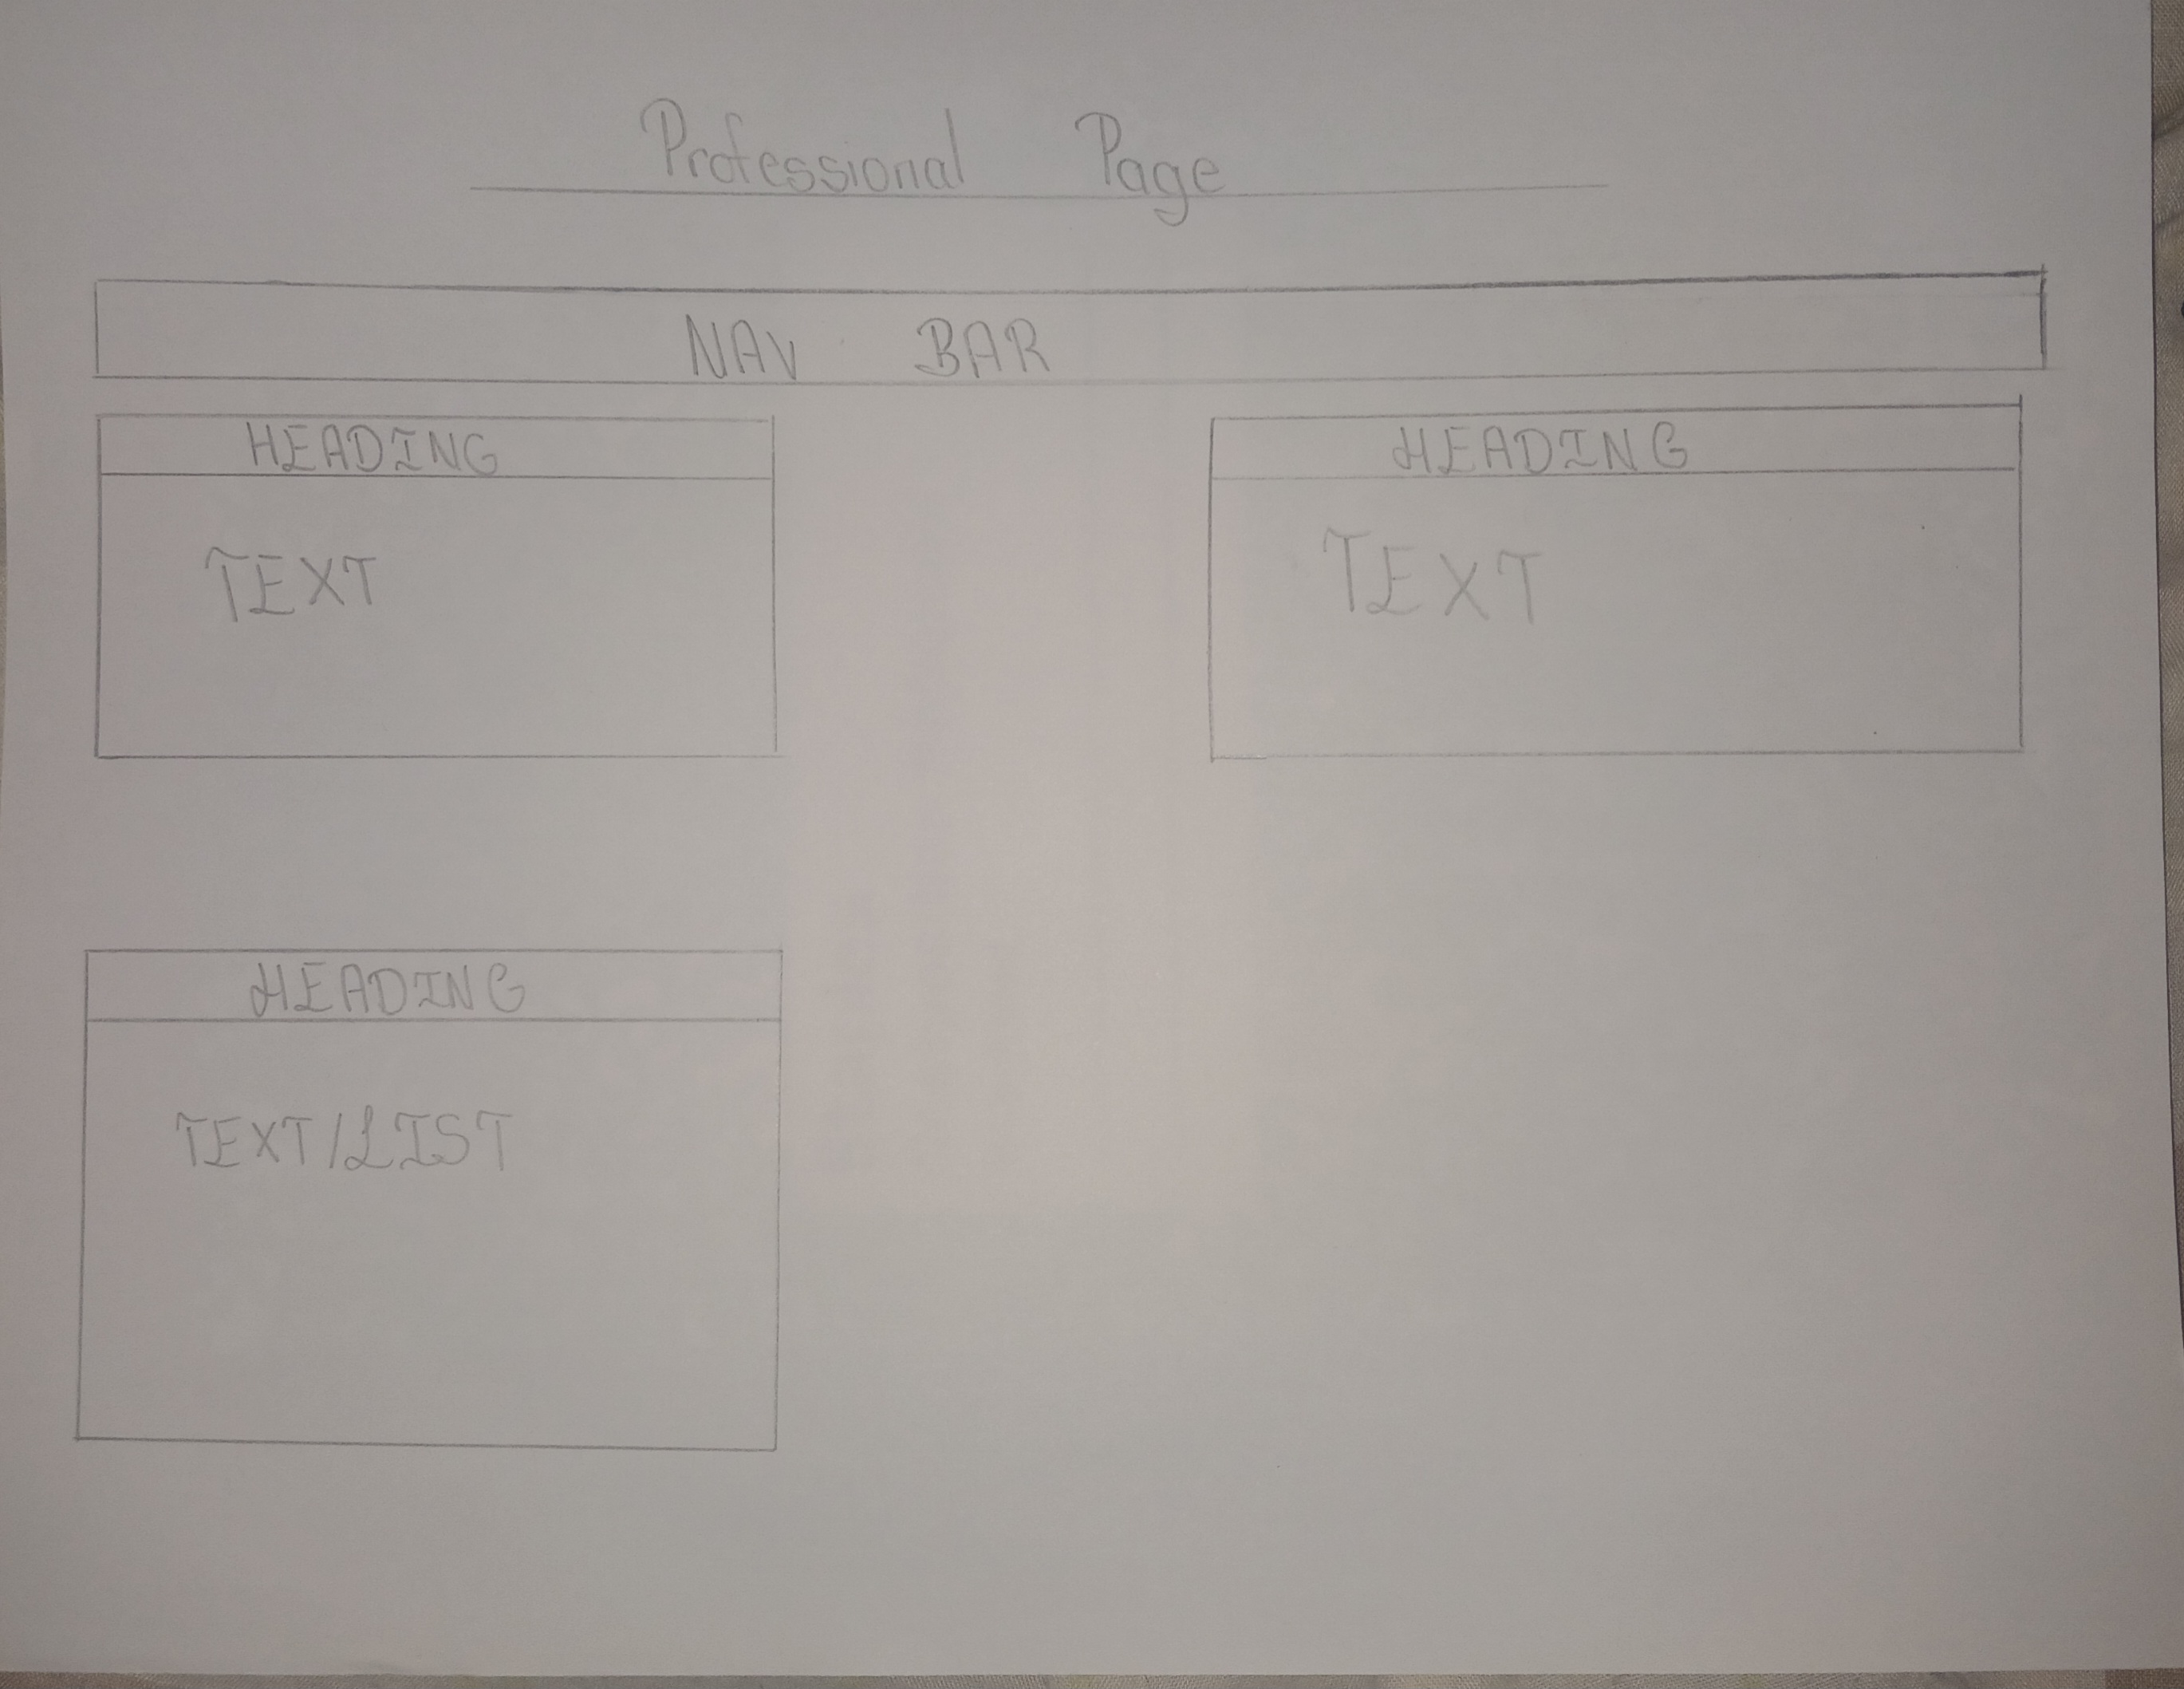 Professional Page
NAV BAR
HEADING
TEXT
HEADING
TEXT
HEADING
TEXT/LIST